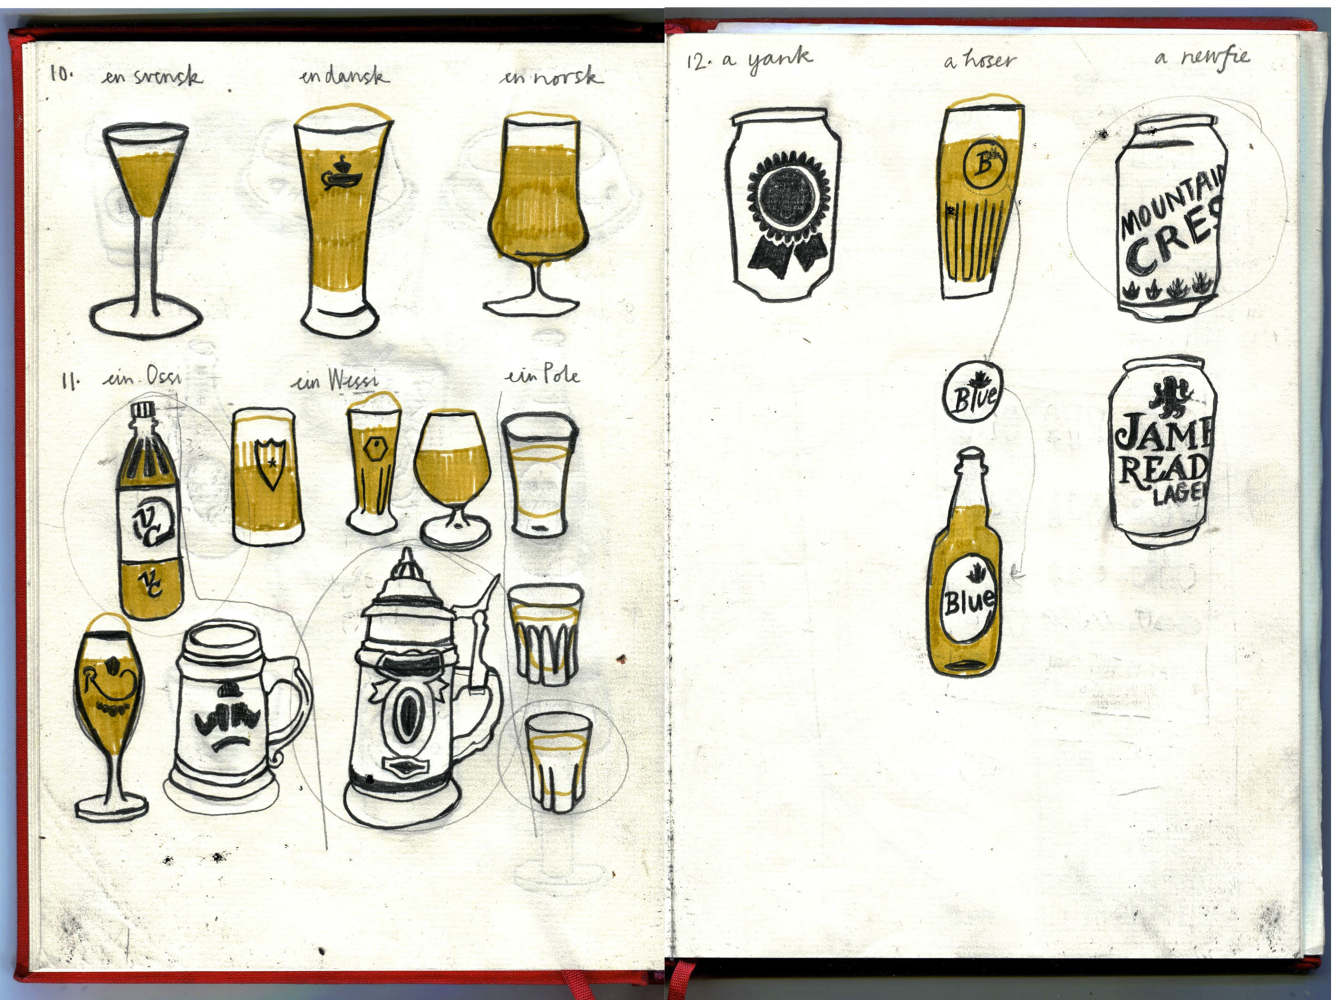 10. en svensk
en dansk
en norsk
11. ein Ossi
ein Wessi
ein Pole
VC
VC
R
12. a yank
a hoser
a newfie
B
MOUNTAIN
CRES
Blue
Blue
JAME
READ
LAGER